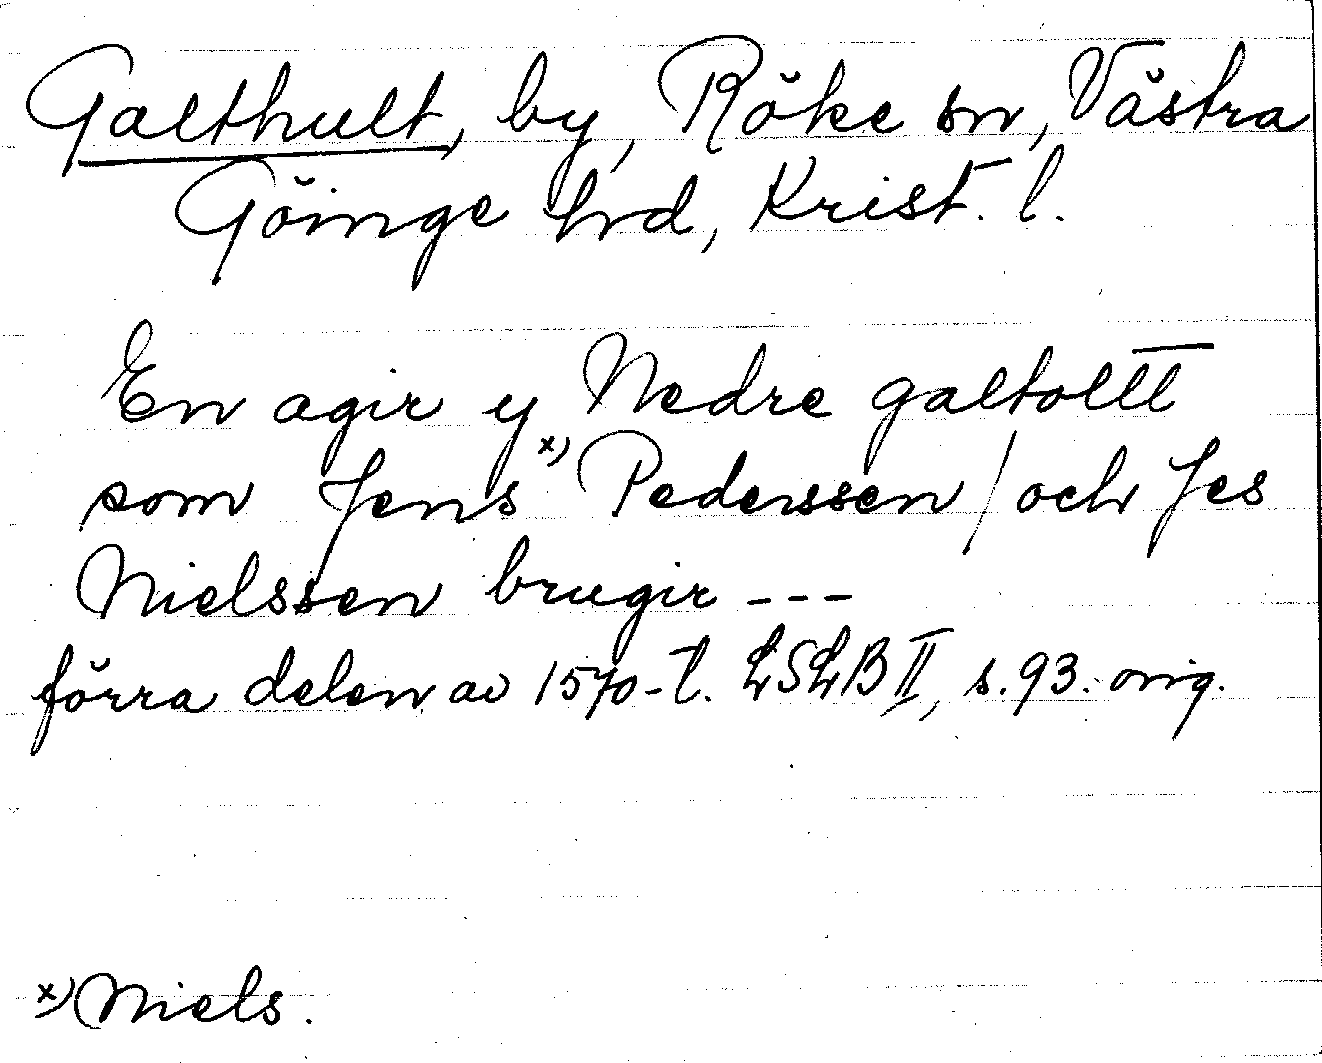 Galthult, by, Röke sn, Västra
Göinge hrd, Krist. l.
En agir y Nedre galtoltt
som Jens x) Pederssen / och Jes
Nielssen brugir ---
förra delen av 1570-t. LSLB II, s. 93. orig.
x) Niels.